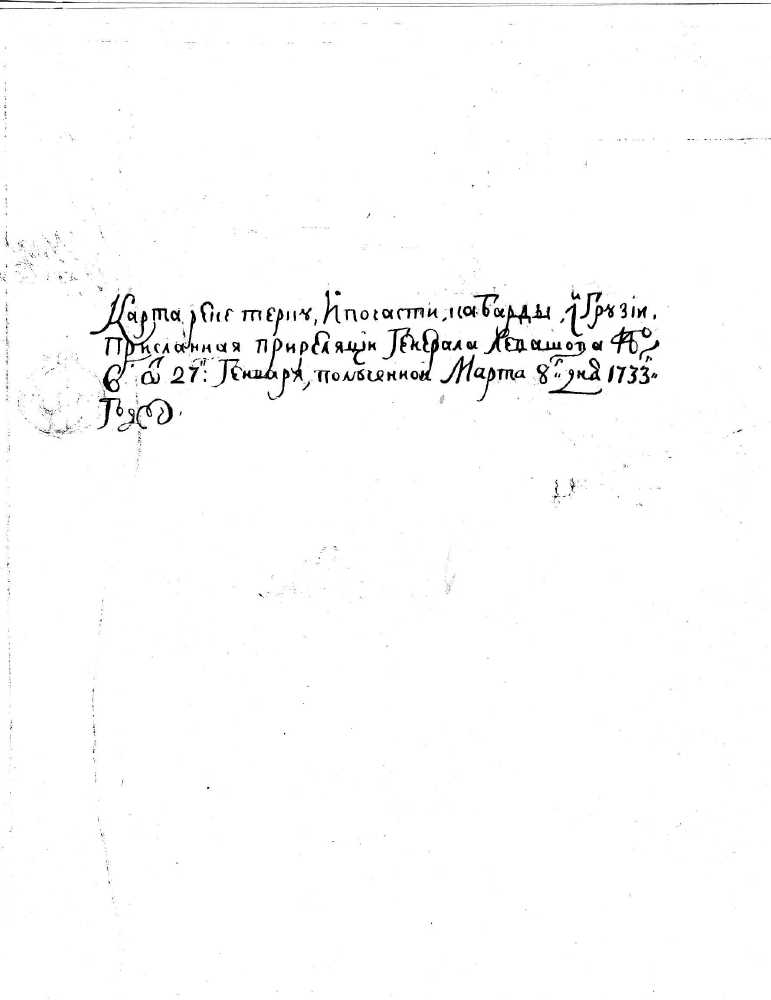 Карта, реке терку, и почасти, кабарды, и Грузiи,
Присланная при реляцiи Генерала Левашова
6. ѿ 27: Генваря, полученной Марта 8 дня 1733
Году.